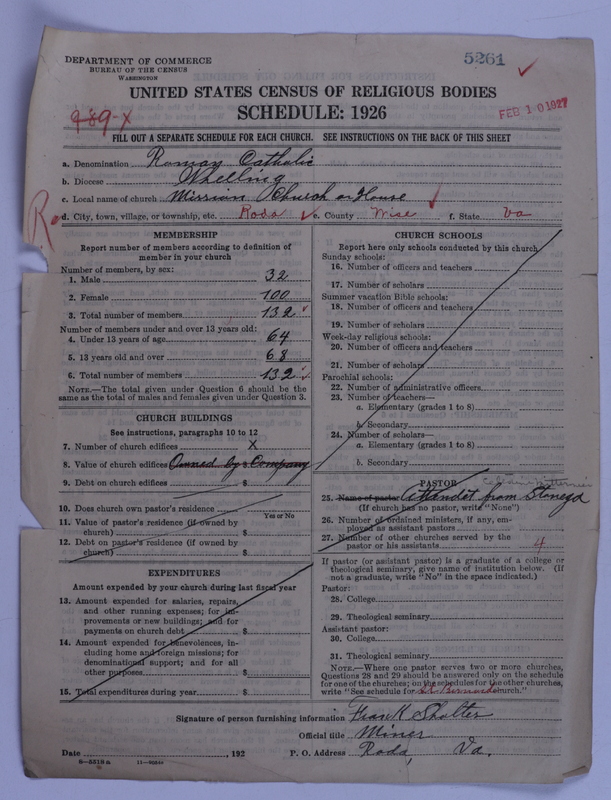 DEPARTMENT OF COMMERCE
BUREAU OF THE CENSUS
WASHINGTON
5261
UNITED STATES CENSUS OF RELIGIOUS BODIES
SCHEDULE: 1926
FEB 10 1927
989-X
FILL OUT A SEPARATE SCHEDULE FOR EACH CHURCH. SEE INSTRUCTIONS ON THE BACK OF THIS SHEET
a. Denomination Roman Catholic
b. Diocese Whelling
c. Local name of church Mission Church or House
d. City, town, village, or township, etc. Roda e. County Wise f. State Va
R
MEMBERSHIP
Report number of members according to definition of
member in your church
Number of members, by sex:
1. Male 32
2. Female 100
3. Total number of members 132
Number of members under and over 13 years old:
4. Under 13 years of age 64
5. 13 years old and over 68
6. Total number of members 132
NOTE.—The total given under Question 6 should be
same as the total of males and females given under Question 3.
CHURCH BUILDINGS
See instructions, paragraphs 10 to 12
7. Number of church edifices X
8. Value of church edifices Owned by $ Company
9. Debt on church edifices $
10. Does church own pastor's residence
Yes or No
11. Value of pastor's residence (if owned by
church) $
12. Debt on pastor's residence (if owned by
church) $
EXPENDITURES
Amount expended by your church during last fiscal year
13. Amount expended for salaries, repairs,
and other running expenses; for im-
provements or new buildings; and for
payments on church debt $
14. Amount expended for benevolences, in-
cluding home and foreign missions; for
denominational support; and for all
other purposes $
15. Total expenditures during year $
CHURCH SCHOOLS
Report here only schools conducted by this church
Sunday schools:
16. Number of officers and teachers
17. Number of scholars
Summer vacation Bible schools:
18. Number of officers and teachers
19. Number of scholars
Week-day religious schools:
20. Number of officers and teachers
21. Number of scholars
Parochial schools:
22. Number of administrative officers
23. Number of teachers—
a. Elementary (grades 1 to 8)
b. Secondary
24. Number of scholars—
a. Elementary (grades 1 to 8)
b. Secondary
PASTOR
25. Name of pastor Attendat from Stonega
(If church has no pastor, write "None")
26. Number of ordained ministers, if any, em-
ployed as assistant pastors
27. Number of other churches served by the
pastor or his assistants 4
If pastor (or assistant pastor) is a graduate of a college or
theological seminary, give name of institution below. (If
not a graduate, write "No" in the space indicated.)
Pastor:
28. College
29. Theological seminary
Assistant pastor:
30. College
31. Theological seminary
NOTE.—Where one pastor serves two or more churches,
Questions 28 and 29 should be answered only on the schedule
for one of the churches; on the schedules for the other churches,
write "See schedule for St Bernards church."
Signature of person furnishing information Frank Shalter
Official title Miner
Date , 192 P. O. Address Roda, Va.